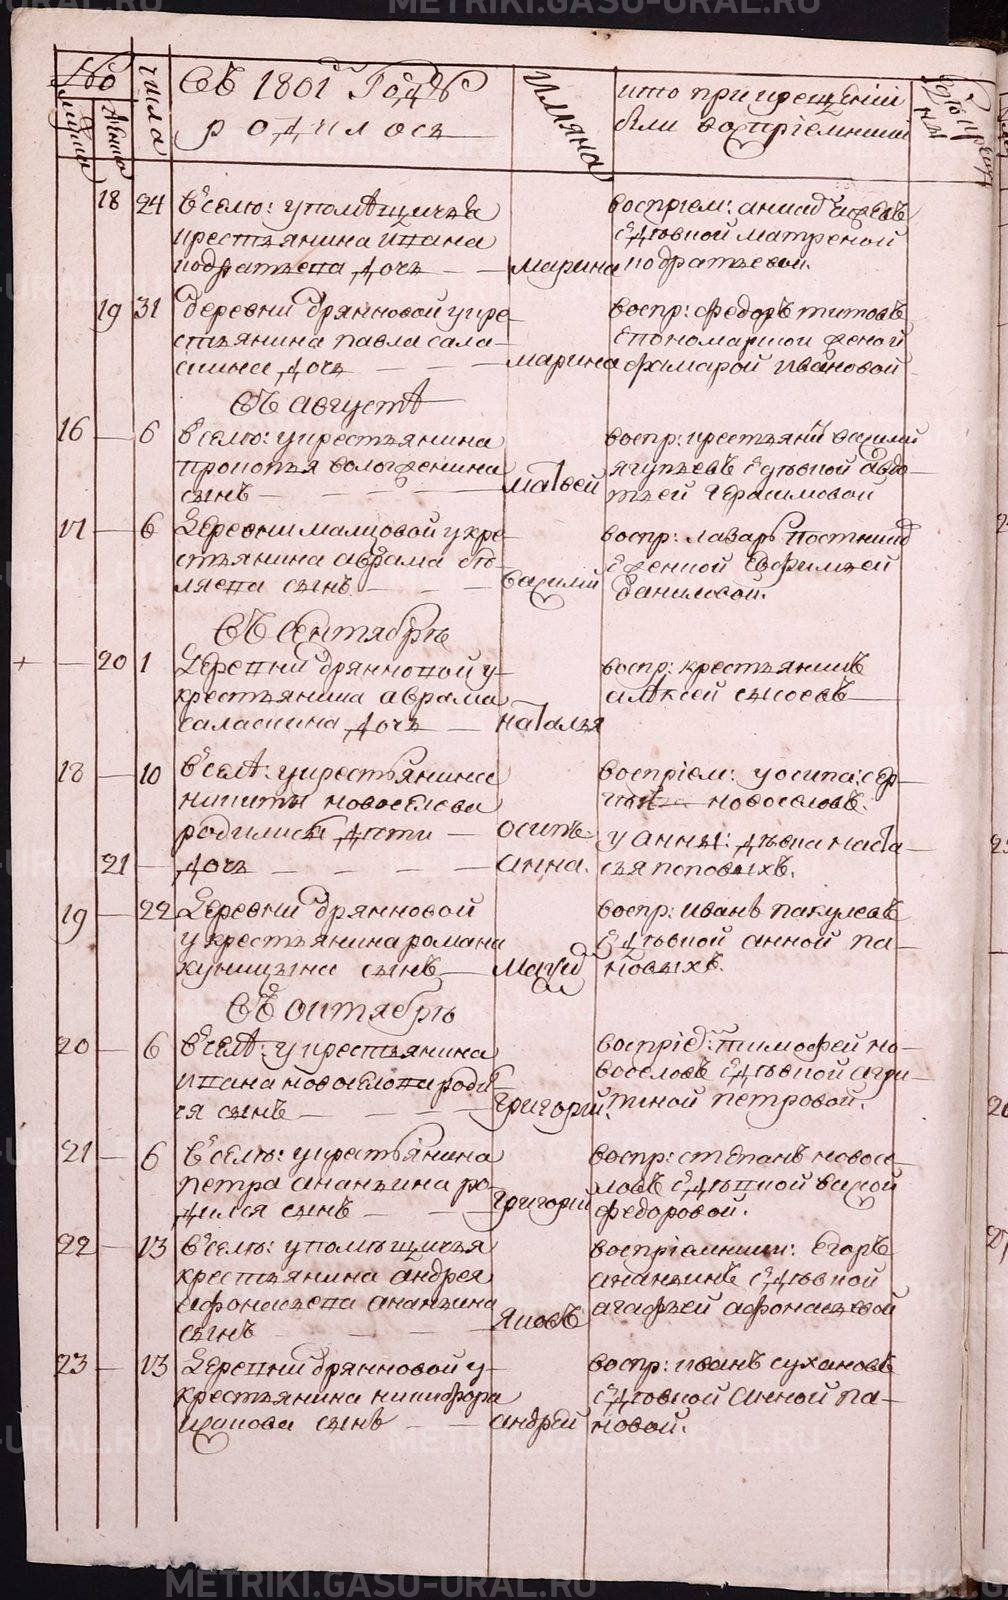 METRIKI.GASU-URAL.RU
№
мужска
женска
числа
Въ 1801 Годѣ
родилось
имяна
кто при крещеніи
были воспріемники
18 24 Въ селѣ: у помѣщичья
крестьянина Ивана
кодратьева дочь — — марина
воспріем:
сдѣвкой матреной
кодратьевой.
19 31 деревни дрянновой у кре
стьянина павла сала
дочь — — — марина
воспр: федоръ титовъ
спономаршой женой
фамарой ивановой
Въ августѣ
16 — 6 Въ селѣ: у крестьянина
прокопья вологженина
сынъ — — — — матвей
воспр: крестьянин василий
ягупьевъ сдѣвкой авдо-
тьей герасимовой
17 — 6 Деревни малцовой у кре
стьянина аврама
сынъ — — — василий
воспр: лазарь постник
сженкой Евфимьей
даниловой.
Въ сентябрѣ
+ — 20 1 Деревни дрянновой у-
крестьянина аврама
саласкина дочь — наталья
воспр: крестьянинъ
алѣксей сысоевъ —
18 — 10 Въ селѣ: у крестьянина
никиты новоселова
родились дѣти — осипъ
21 — дочь — — — — анна.
воспріем: у осипа: сер-
новоселовъ.
у анны: дѣвка наста-
сья поповыхъ.
19 — 22 Деревни дрянновой
у крестьянина романа
куницына сынъ —
воспр: иванъ пакулевъ
сдѣвкой анной па-
новыхъ.
Въ октябрѣ
20 — 6 Въ селѣ: у крестьянина
ивана новоселова родил
ся сынъ — — — — григорий
воспріе: тимофей но-
воселовъ сдѣвкой агри-
пиной петровой.
21 — 6 Въ селѣ: у крестьянина
петра ананьина ро-
дился сынъ — — григорий
воспр: степанъ новосе-
ловъ сдѣвкой васой
федоровой.
22 — 13 Въ селѣ: у помѣщичья
крестьянина андрея
афонасьева ананьина
сынъ — — — яковъ
воспріемники: Егоръ
ананьинъ сдѣвкой
агафьей афонасьевой
23 — 13 Деревни дрянновой у-
крестьянина никифора
сынъ — — андрей
воспр: иванъ сухановъ
сдѣвкой анной па-
новой.
METRIKI.GASU-URAL.RU